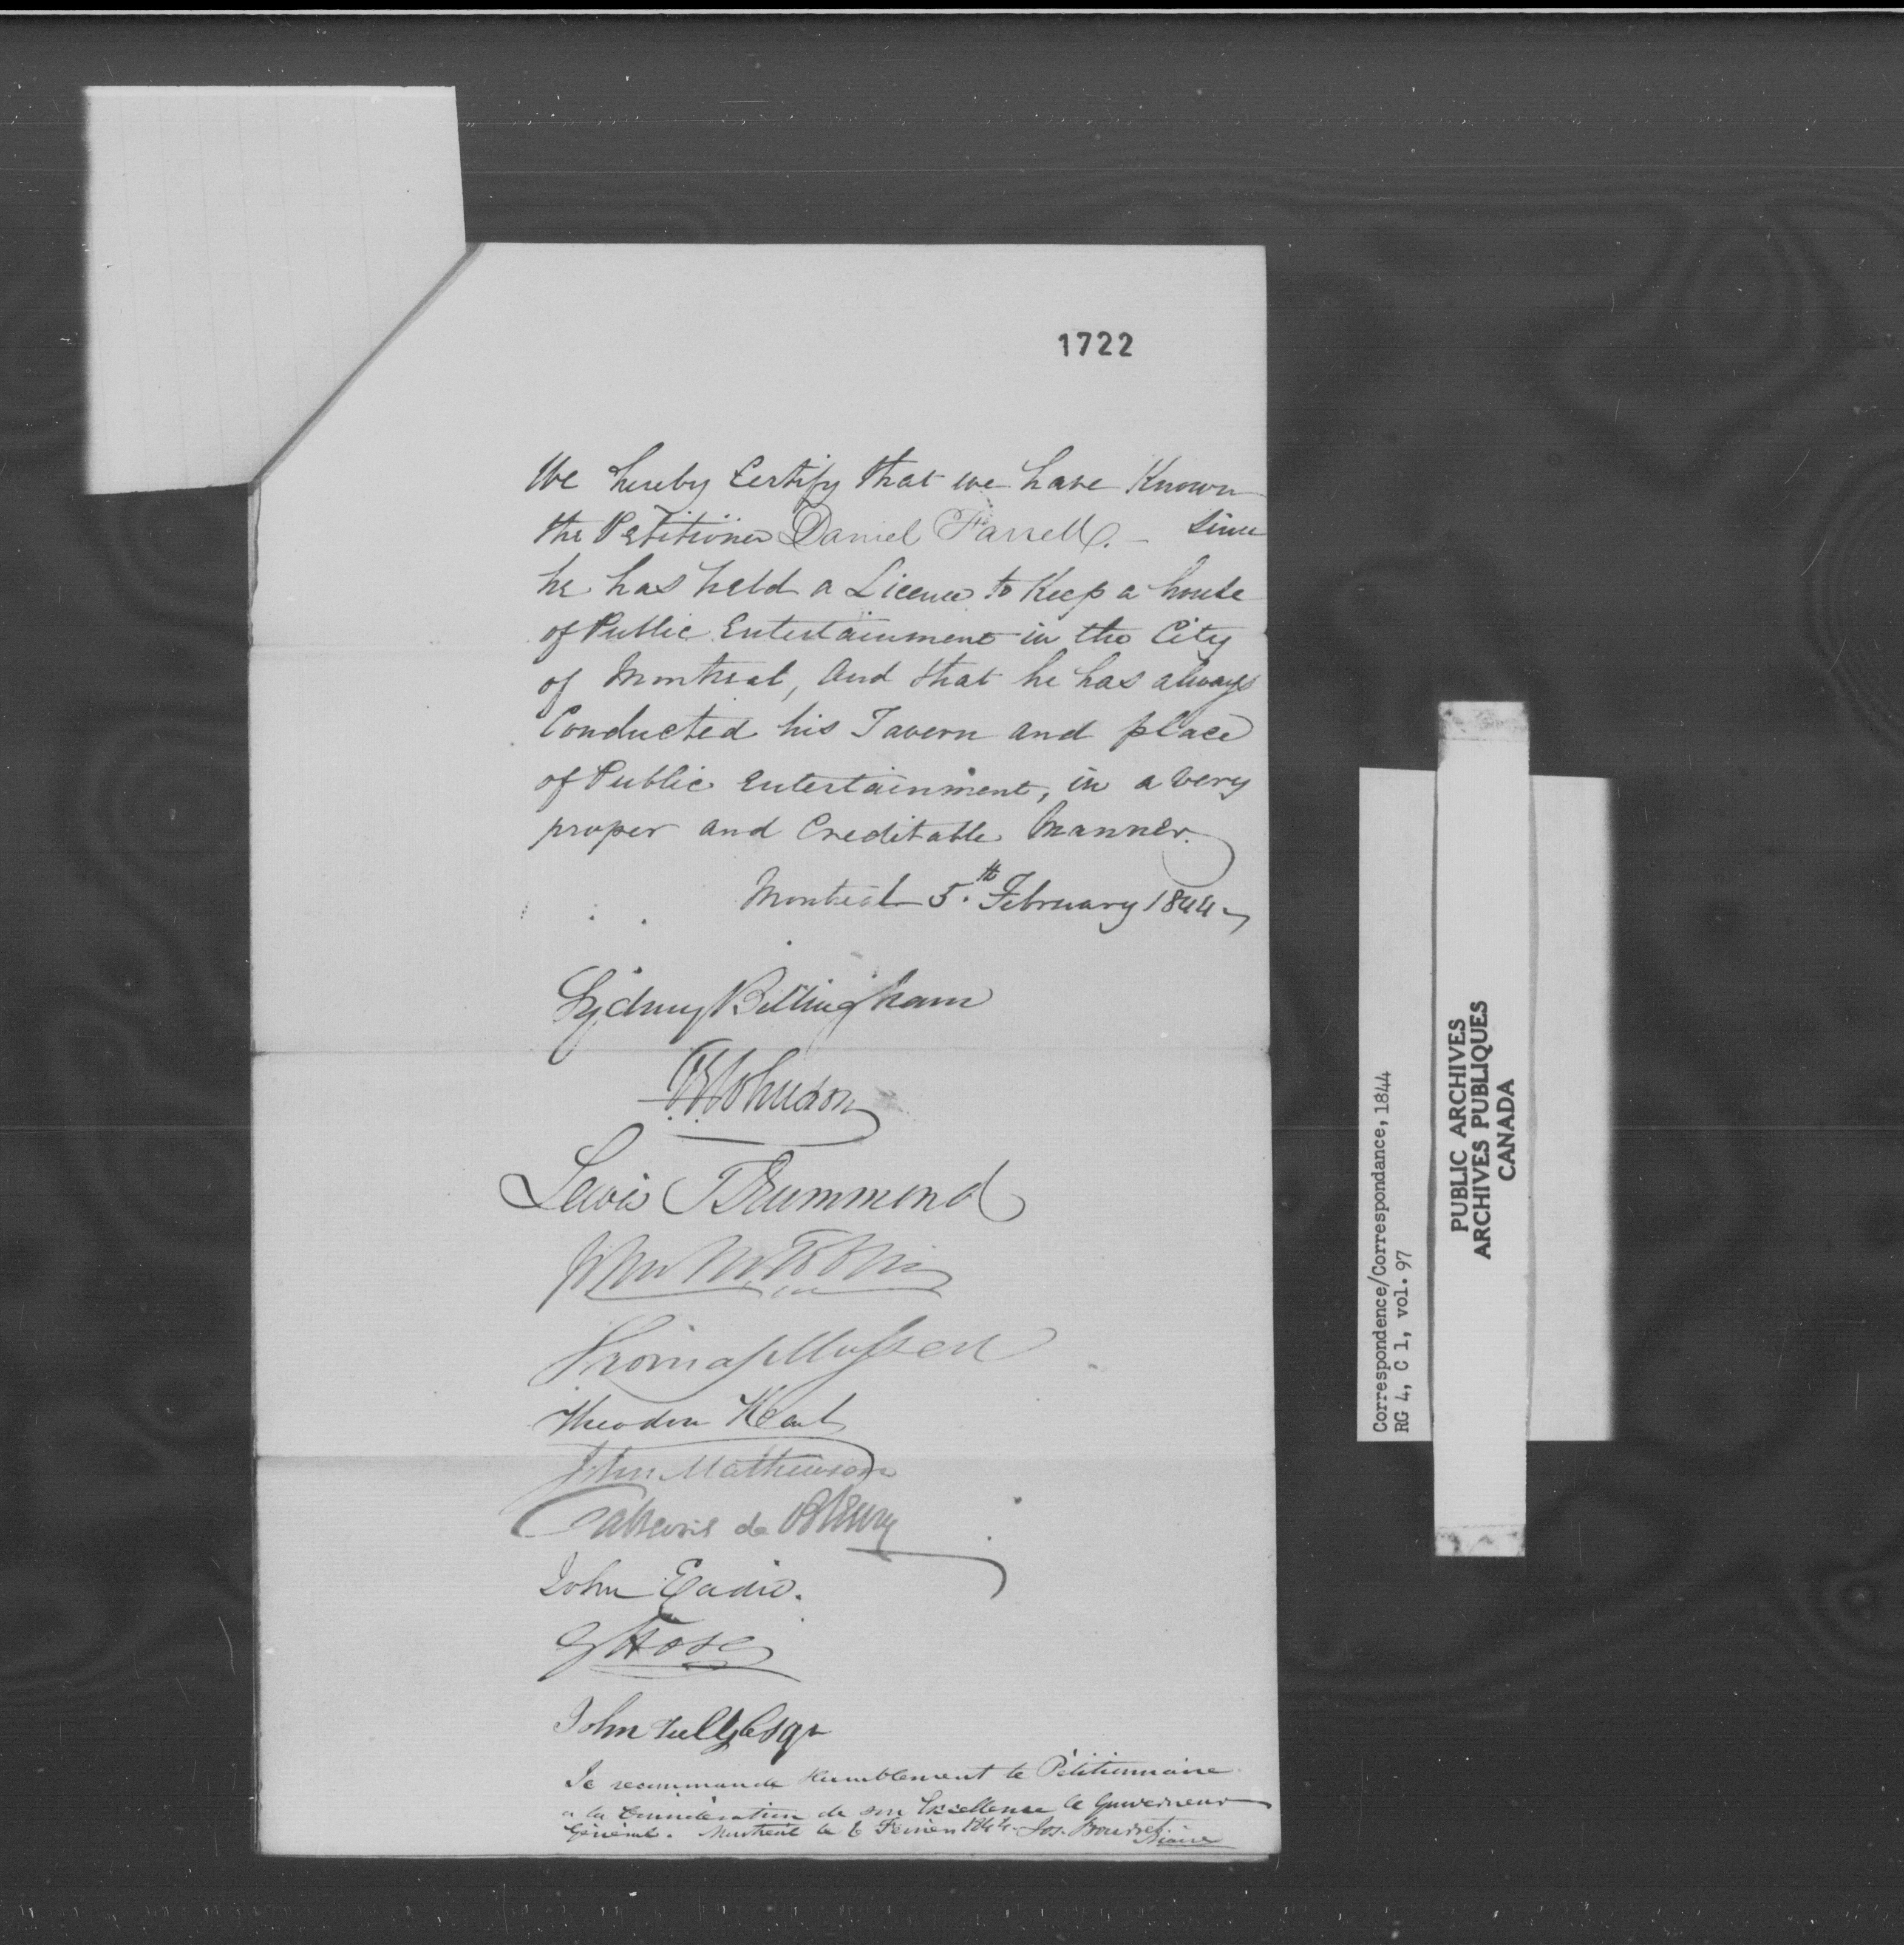 1722
We hereby Certify that we have Known
the Petitioner Daniel Farrell. - Since
he has held a Licence to Keep a house
of Public Entertainment in the City
of Montreal, and that he has always
Conducted his Tavern and place
of Public Entertainment, in a very
proper and Creditable Manner.
Montreal 5.th February 1844
Sydney Bellingham
Johnson
Lewis T Drummond
John
Thomas Mussen
Theodore Hart
John Mathewson
de Bleury
John Eadie.
John Tully Esqr
Je recommande Humblement le Pétitionnaire
a la Consideration de son Excellence le Gouverneur
Général. Montreal le 6 Fevrier 1844. Jos. Bourret
Maire
Correspondence/Correspondance, 1844
RG 4, C 1, vol. 97
PUBLIC ARCHIVES
ARCHIVES PUBLIQUES
CANADA